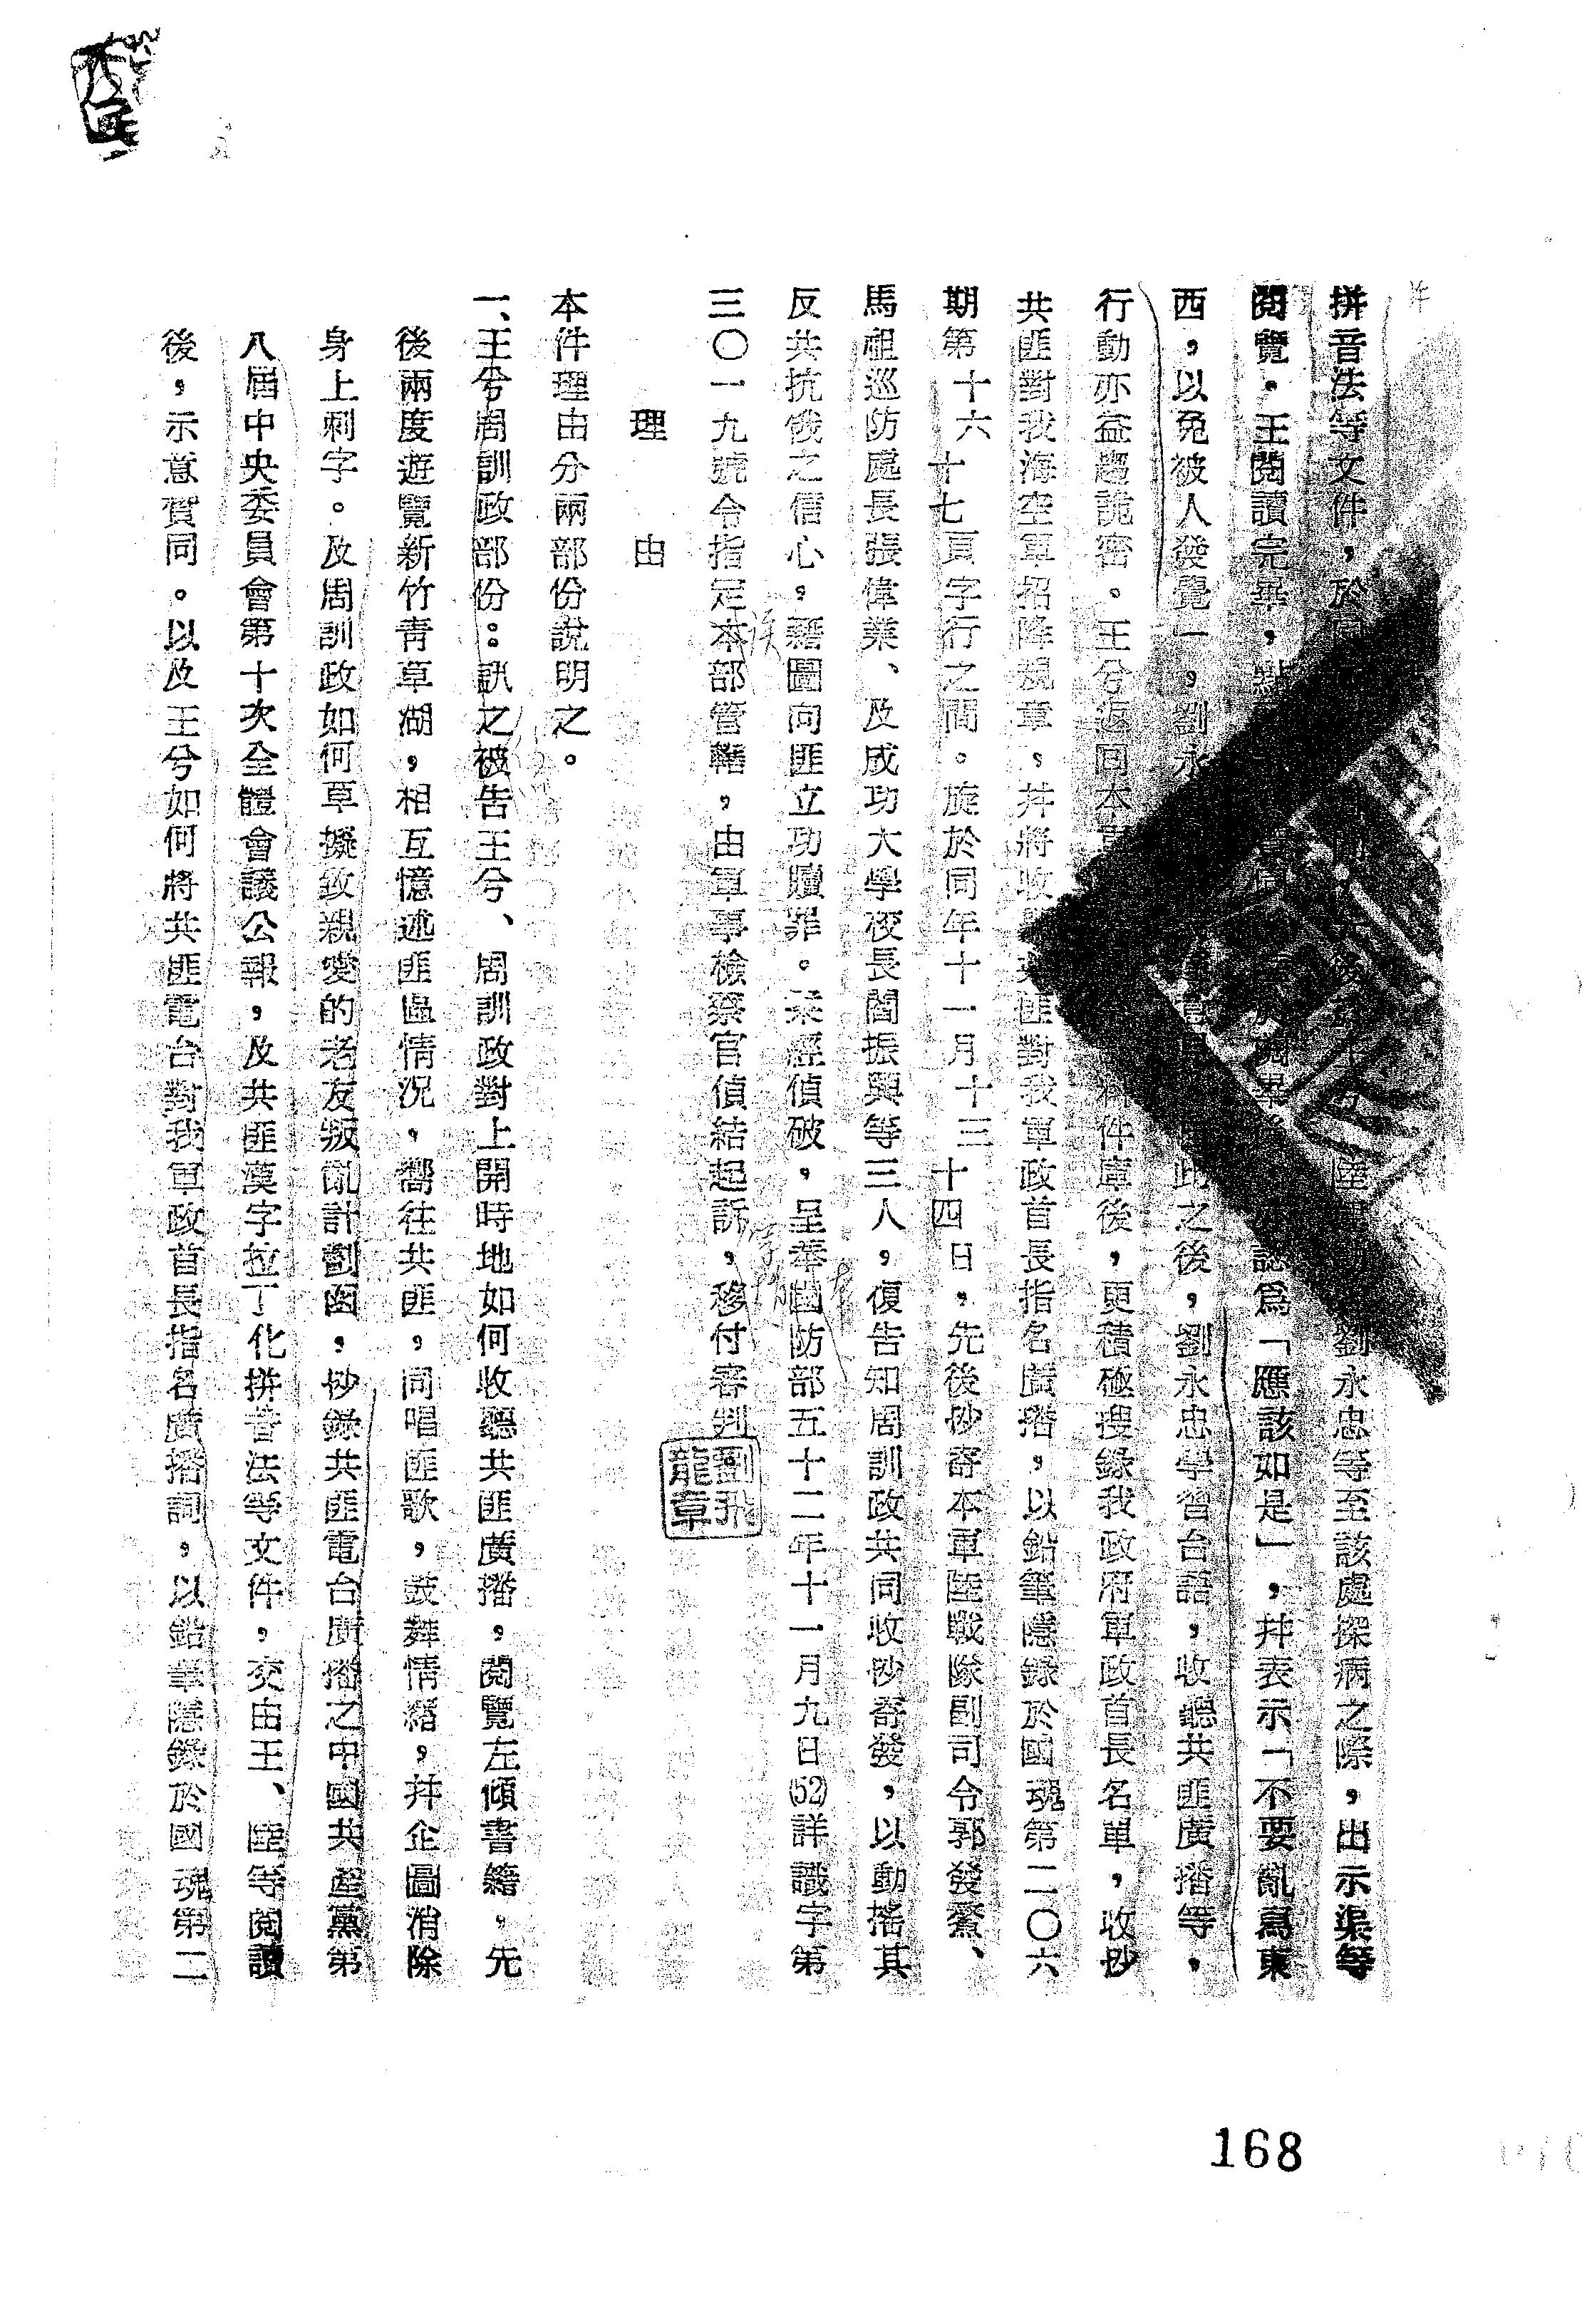 拼音法等文件，於　　　　　　　　　　　　　　　劉永忠等至該處探病之際，出示渠等
閱覽。王閱讀完畢，點　　　　　　　　閱畢　　認爲「應該如是」，幷表示「不要亂寫東
西，以免被人發覺」，劉永　　　　　　　此之後，劉永忠學習台語，收聽共匪廣播等，
行動亦益趨詭密。王兮返回本軍　　料件庫後，更積極搜錄我政府軍政首長名單，收抄
共匪對我海空軍招降規章，幷將收　共匪對我軍政首長指名廣播，以鉛筆隱錄於國魂第二〇六
期第十六十七頁字行之間。旋於同年十一月十三十四日，先後抄寄本軍陸戰隊副司令郭發鰲、
馬祖巡防處長張偉業、及成功大學校長閻振興等三人，復告知周訓政共同收抄寄發，以動搖其
反共抗俄之信心，藉圖向匪立功贖罪。案經偵破，呈奉國防部五十二年十一月九日(52)詳識字第
三〇一九號令指定本部管轄，由軍事檢察官偵結起訴，移付審判
劉飛龍章
理由
本件理由分兩部份說明之。
一、王兮周訓政部份：訊之被告王兮、周訓政對上開時地如何收聽共匪廣播，閱覽左傾書籍，先
後兩度遊覽新竹青草湖，相互憶述匪區情況，嚮往共匪，同唱匪歌，鼓舞情緒，幷企圖消除
身上刺字。及周訓政如何草擬致親愛的老友叛亂計劃函，抄錄共匪電台廣播之中國共產黨第
八屆中央委員會第十次全體會議公報，及共匪漢字拉丁化拼音法等文件，交由王、陸等閱讀
後，示意贊同。以及王兮如何將共匪電台對我軍政首長指名廣播詞，以鉛筆隱錄於國魂第二
168